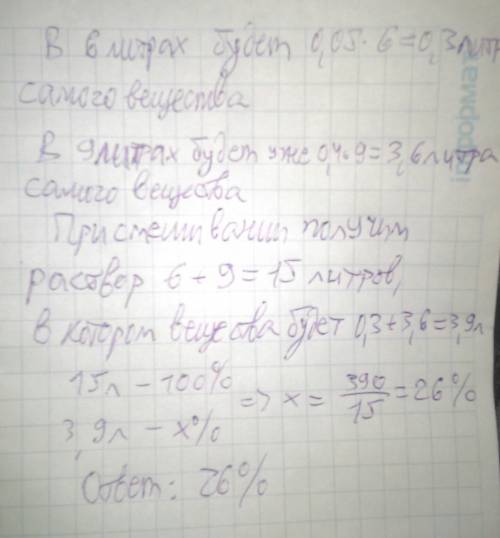 В 6 литрах будет 0,05 · 6 = 0,3 литр
самого вещества
В 9 литрах будет уже 0,4·9 = 3,6 литра
самого вещества
При смешивании получим
раствор 6 + 9 = 15 литров,
в котором вещества будет 0,3 + 3,6 = 3,9л
15л – 100%
3,9л – x% => x = 390/15 = 26%
Ответ: 26%